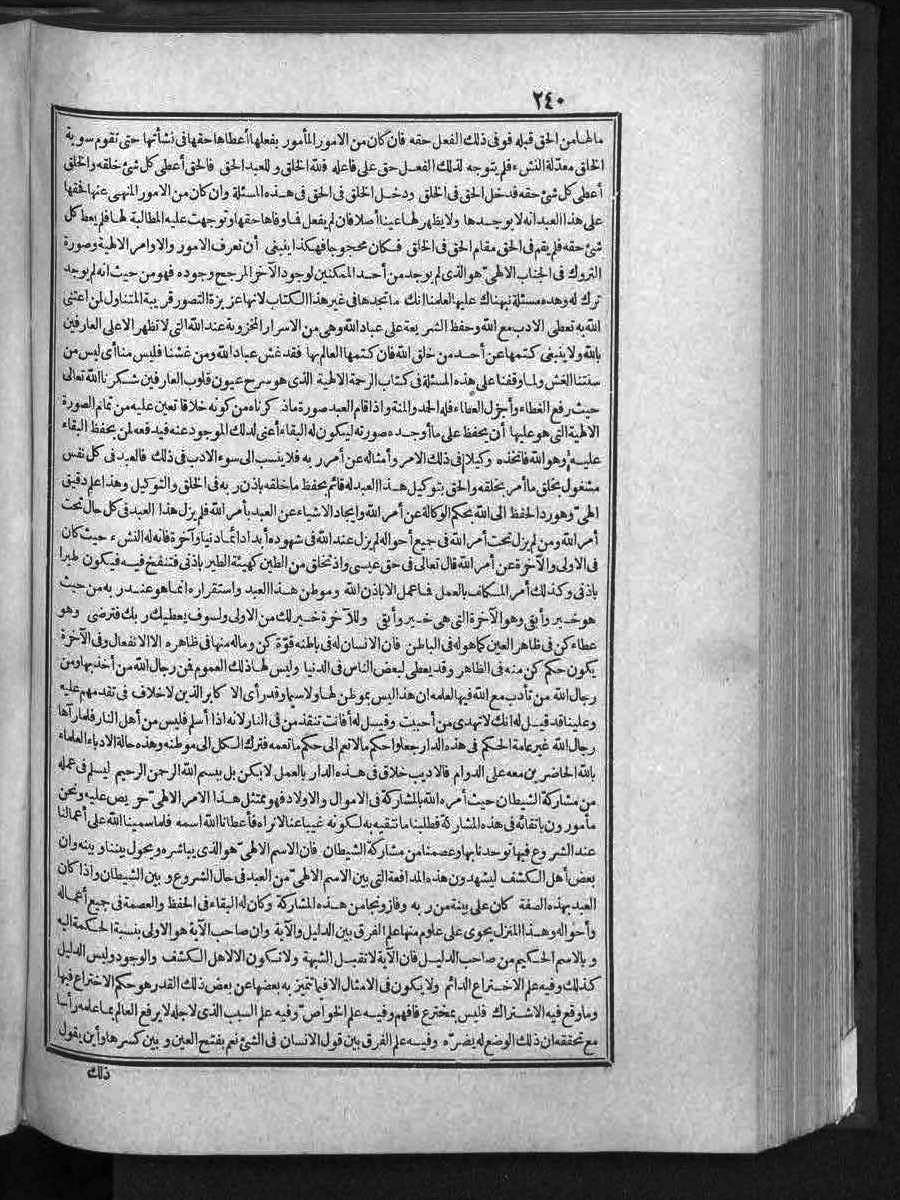 ٢٤٠
مالها من الحق قبله فوفى ذلك الفعل حقه فان كان من الامور المأمور بفعلها أعطاها حقها فى نشأتها حتى تقوم سوية
الخلق معدّلة النشء فلم يتوجه لذلك الفعل حق على فاعله فلله الخلق وللعبد الحق فالحق أعطى كل شئ خلقه والخلق
أعطى كل شئ حقه فدخل الحق فى الخلق ودخل الخلق فى الحق فى هذه المسئلة وان كان من الامور المنهى عنها فحقها
على هذا العبد انه لا يوجدها ولا يظهر لها عينا أصلا فان لم يفعل فما وفاها حقها وتوجهت عليه المطالبة لها فلم يعط كل
شئ حقه فلم يقم فى الحق مقام الحق فى الخلق فكان محجوجا فهكذا ينبغى أن تعرف الامور والاوامر الالهية وصورة
التروك فى الجناب الالهىّ هو الذى لم يوجد من أحد الممكنين لوجود الآخر المرجح وجوده فهو من حيث انه لم يوجد
ترك له وهذه مسئلة نبهناك عليها لعلمنا انك ما تجدها فى غير هذا الكتاب لانها عزيزة التصور قريبة المتناول لمن اعتنى
الله به تعطى الادب مع الله وحفظ الشريعة على عباد الله وهى من الاسرار المخزونة عند الله التى لا تظهر الا على العارفين
بالله ولا ينبغى كتمها عن أحد من خلق الله فان كتمها العالم بها فقد غش عباد الله ومن غشنا فليس منا أى ليس من
سنتنا الغش ولما وقفنا على هذه المسئلة فى كتاب الرحمة الالهية الذى هو سرح عيون قلوب العارفين شكرنا الله تعالى
حيث رفع الغطاء وأجزل العطاء فله الحمد والمنة واذا قام العبد صورة ماذكرناه من كونه خلاقا تعين عليه من تمام الصورة
الالهية التى هو عليها أن يحفظ على ما أوجده صورته ليكون له البقاء أعنى لذلك الموجود عنه فيدفعه لمن يحفظ البقاء
عليه وهو الله فاتخذه وكيلا فى ذلك الامر وأمثاله عن أمر ربه فلا ينسب الى سوء الادب فى ذلك فالعبد فى كل نفس
مشغول بخلق ما أمر بخلقه والحق بتوكيل هذا العبد له قائم بحفظ ما خلقه باذن ربه فى الخلق والتوكيل وهذا علم دقيق
الهىّ وهو رد الحفظ الى الله بحكم الوكالة عن أمر الله وايجاد الاشياء عن العبد بأمر الله فلم يزل هذا العبد فى كل حال تحت
أمر الله ومن لم يزل تحت أمر الله فى جميع أحواله لم يزل عند الله فى شهوده أبدا دائما دنيا وآخرة فانه له النشء حيث كان
فى الاولى والآخرة عن أمر الله قال تعالى فى حق عيسى واذ تخلق من الطين كهيئة الطير باذنى فتنفخ فيه فيكون طيرا
باذنى وكذلك أمر المكلف بالعمل فما عمل الا باذن الله وموطن هذا العبد واستقراره انما هو عند ربه من حيث
هو خير وأبقى وهو الآخرة التى هى خير وأبقى وللآخرة خير لك من الاولى ولسوف يعطيك ربك فترضى وهو
عطاء كن فى ظاهر العين كما هو له فى الباطن فان الانسان له فى باطنه قوّة كن وماله منها فى ظاهره الا الانفعال وفى الآخرة
يكون حكم كن منه فى الظاهر وقد يعطى لبعض الناس فى الدنيا وليس لها ذلك العموم فمن رجال الله من أخذ بها ومن
رجال الله من تأدب مع الله فيها لعلمه ان هذا ليس بموطن لها ولاسيما وقد رأى الاكابر الذين لا خلاف فى تقدمهم عليه
وعلينا قد قيل له انك لا تهدى من أحببت وقيل له أفانت تنقذ من فى النار لانه اذا أسلم فليس من أهل النار فلما رآها
رجال الله غير عامة الحكم فى هذه الدار جعلوا حكم ما لا تعم الى حكم ما تعمه فترك الكل الى موطنه وهذه حالة الادباء العلماء
بالله الحاضرين معه على الدوام فالاديب خلاق فى هذه الدار بالعمل لا بكن بل بسم الله الرحمن الرحيم ليسلم فى عمله
من مشاركة الشيطان حيث أمره الله بالمشاركة فى الاموال والاولاد فهو ممتثل هذا الامر الالهىّ حريص عليه ونحن
مأمورون باتقائه فى هذه المشاركة فطلبنا ما نتقيه به لكونه غيبا عنا لا نراه فأعطانا الله اسمه فلما سمينا الله على أعمالنا
عند الشروع فيها توحدنا بها وعصمنا من مشاركة الشيطان فان الاسم الالهىّ هو الذى يباشره ويحول بيننا وبينه وان
بعض أهل الكشف ليشهدون هذه المدافعة التى بين الاسم الالهىّ من العبد فى حال الشروع وبين الشيطان واذا كان
العبد بهذه الصفة كان على بينة من ربه وفاز ونجا من هذه المشاركة وكان له البقاء فى الحفظ والعصمة فى جميع أعماله
وأحواله وهذا المنزل يحوى على علوم منها علم الفرق بين الدليل والآية وان صاحب الآية هو الاولى بنسبة الحكمة اليه
وبالاسم الحكيم من صاحب الدليل فان الآية لا تقبل الشبهة ولا تكون الا لاهل الكشف والوجود وليس الدليل
كذلك وفيه علم الاختراع الدائم ولا يكون فى الامثال الا فيما تتميز به بعضها عن بعض ذلك القدر هو حكم الاختراع فيها
وما وقع فيه الاشتراك فليس بمخترع فافهم وفيه علم الخواصّ وفيه علم السبب الذى لاجله لا يرفع العالم بما علمه رأسا
مع تحققه ان ذلك الوضع له يضرّه وفيه علم الفرق بين قول الانسان فى الشئ نعم بفتح العين وبين كسرها وأين يقول
ذلك